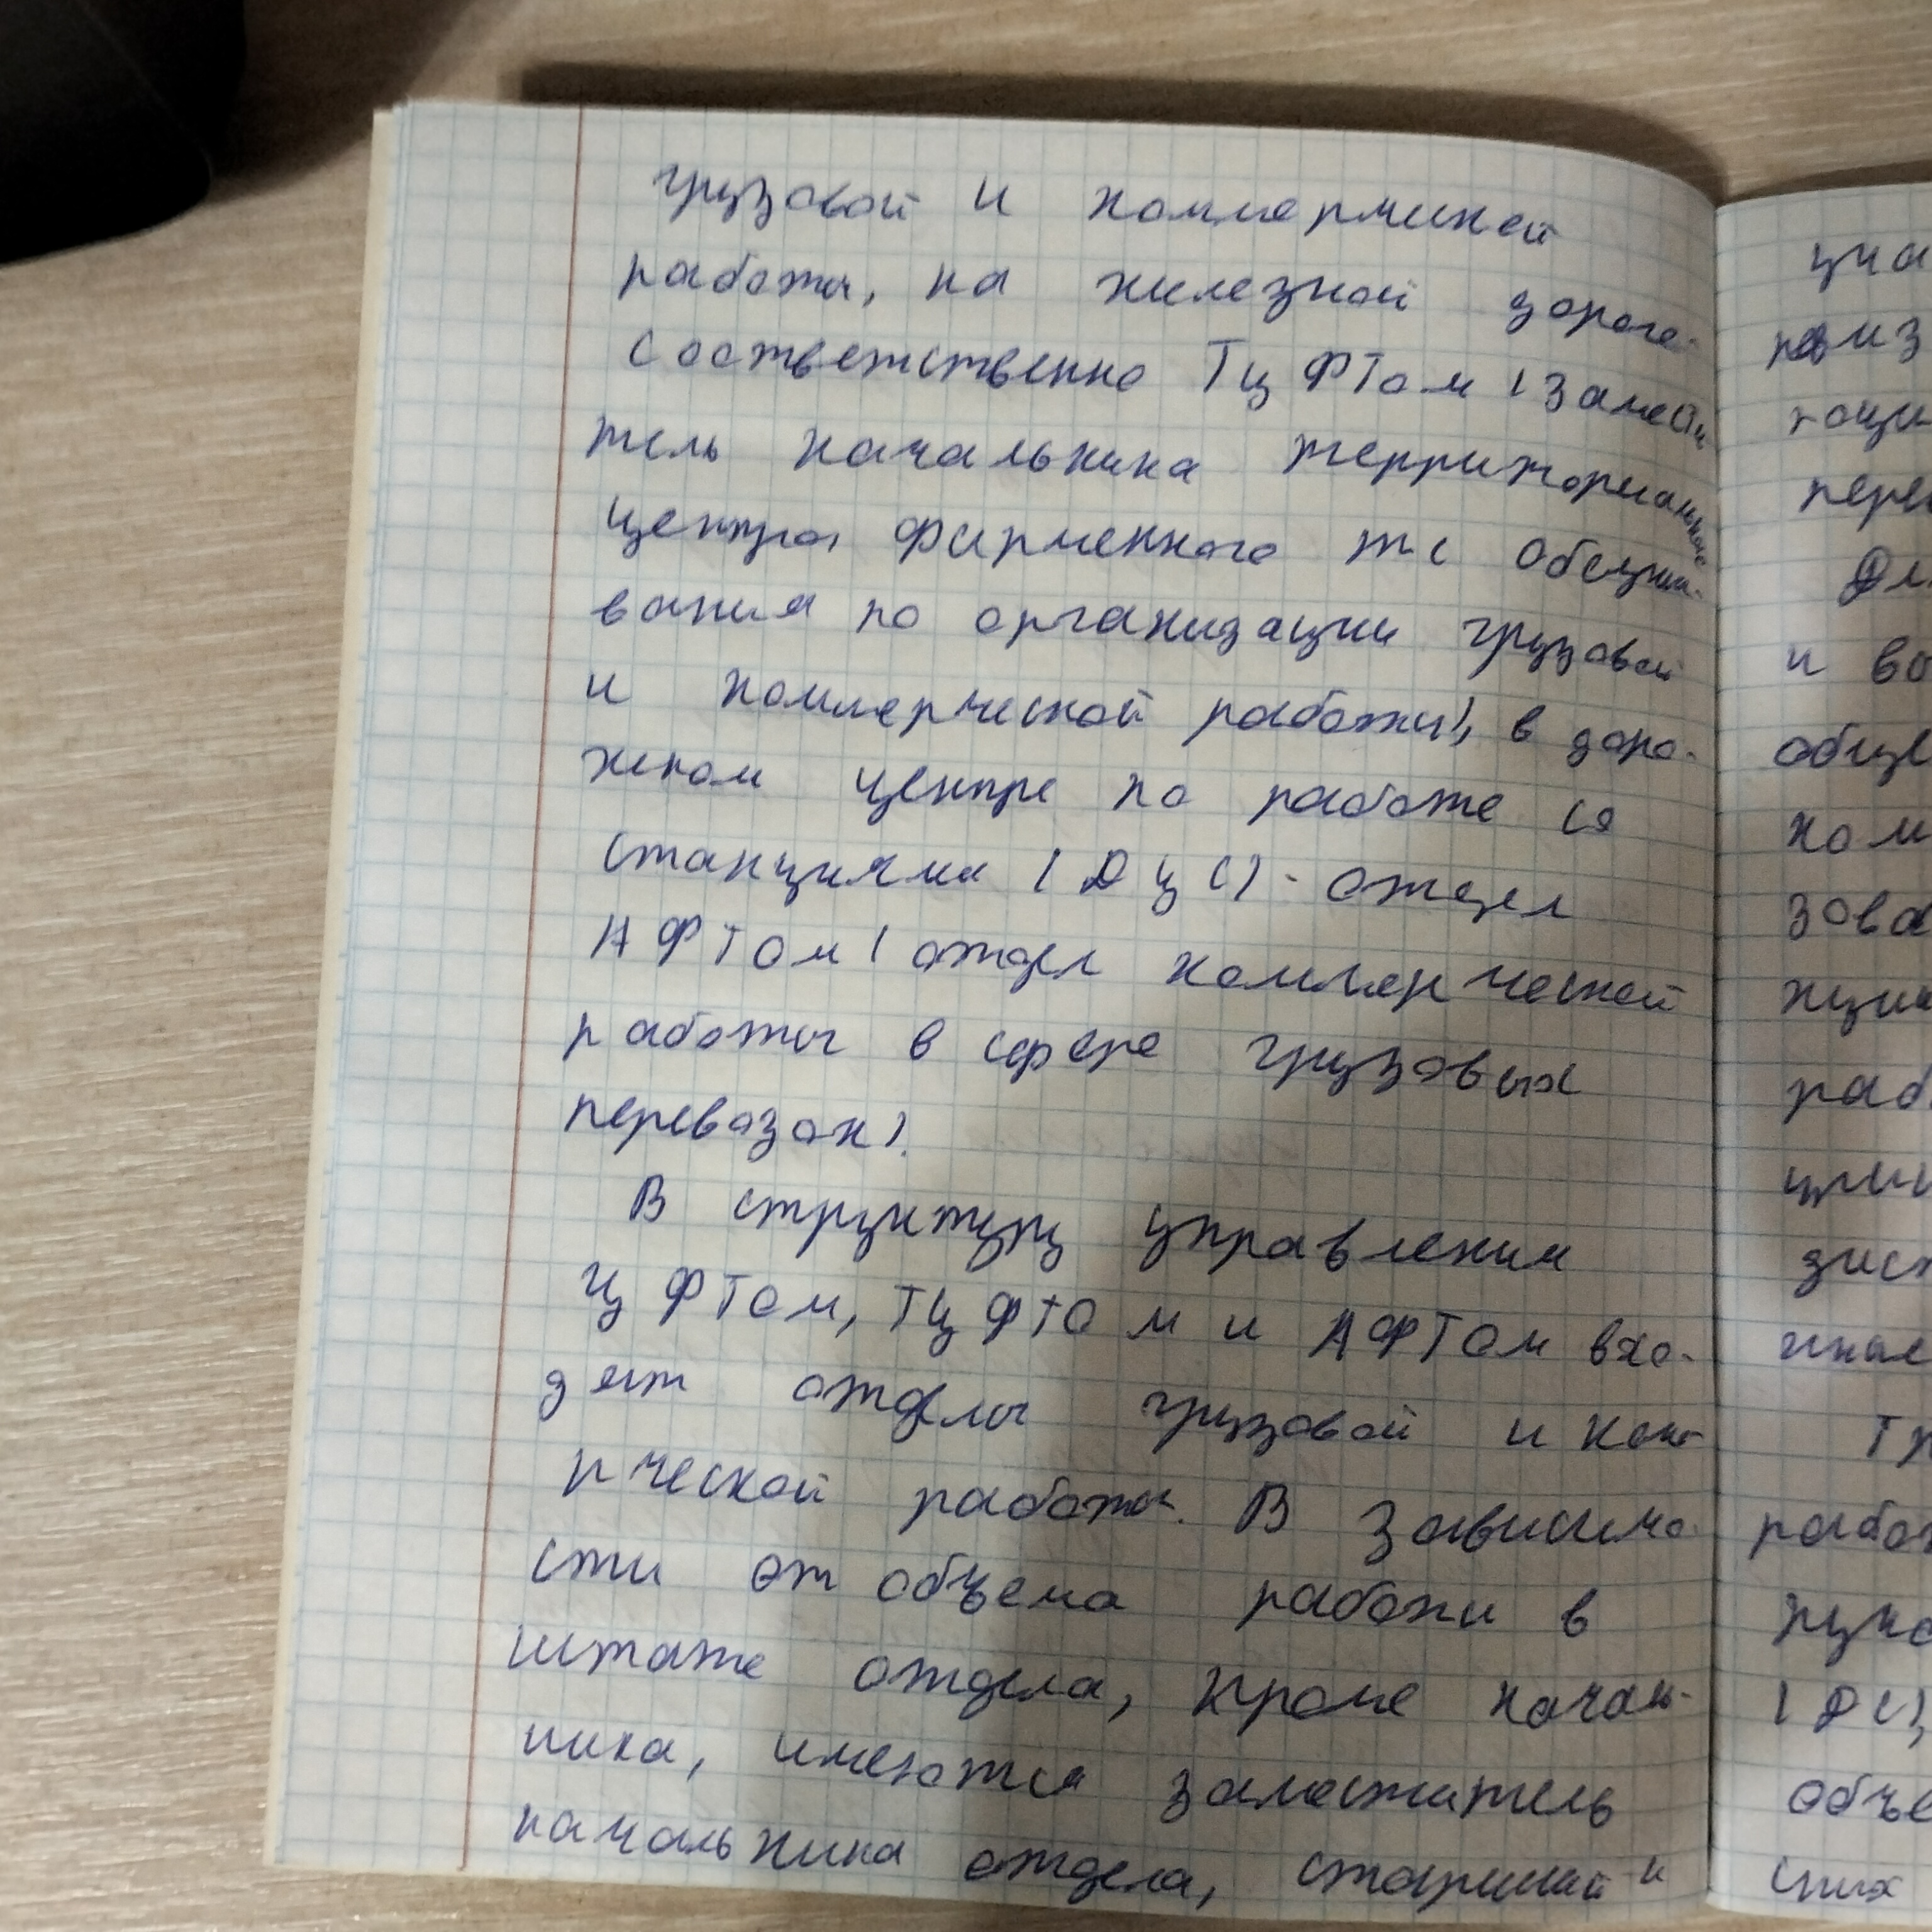 грузовой и коммерчикой
работы, на железной дороге-
соответственно ТЦФТОм (замести
тель начальника территориального
центра, фирменного тс обслужи-
вания по организации грузовой
и коммерческой работы), в доро-
жном центре по работе со
станциями (ДЦС) - отдел
АФТОм (отдел коммерческой
работы в сфере грузовых
перевозок).
В структуру управления
ЦФТОм, ТЦФТОм и АФТОм вхо-
дят отделы грузовой и ком
рческой работы. В зависимо
сти от объема работы в
штате отдела, кроме началь-
ника, имеются заместитель
начальника отдела, старший и
циа
перев
Дл
и во
обще
ком
зова
раб
рабо
(ДС),
объе